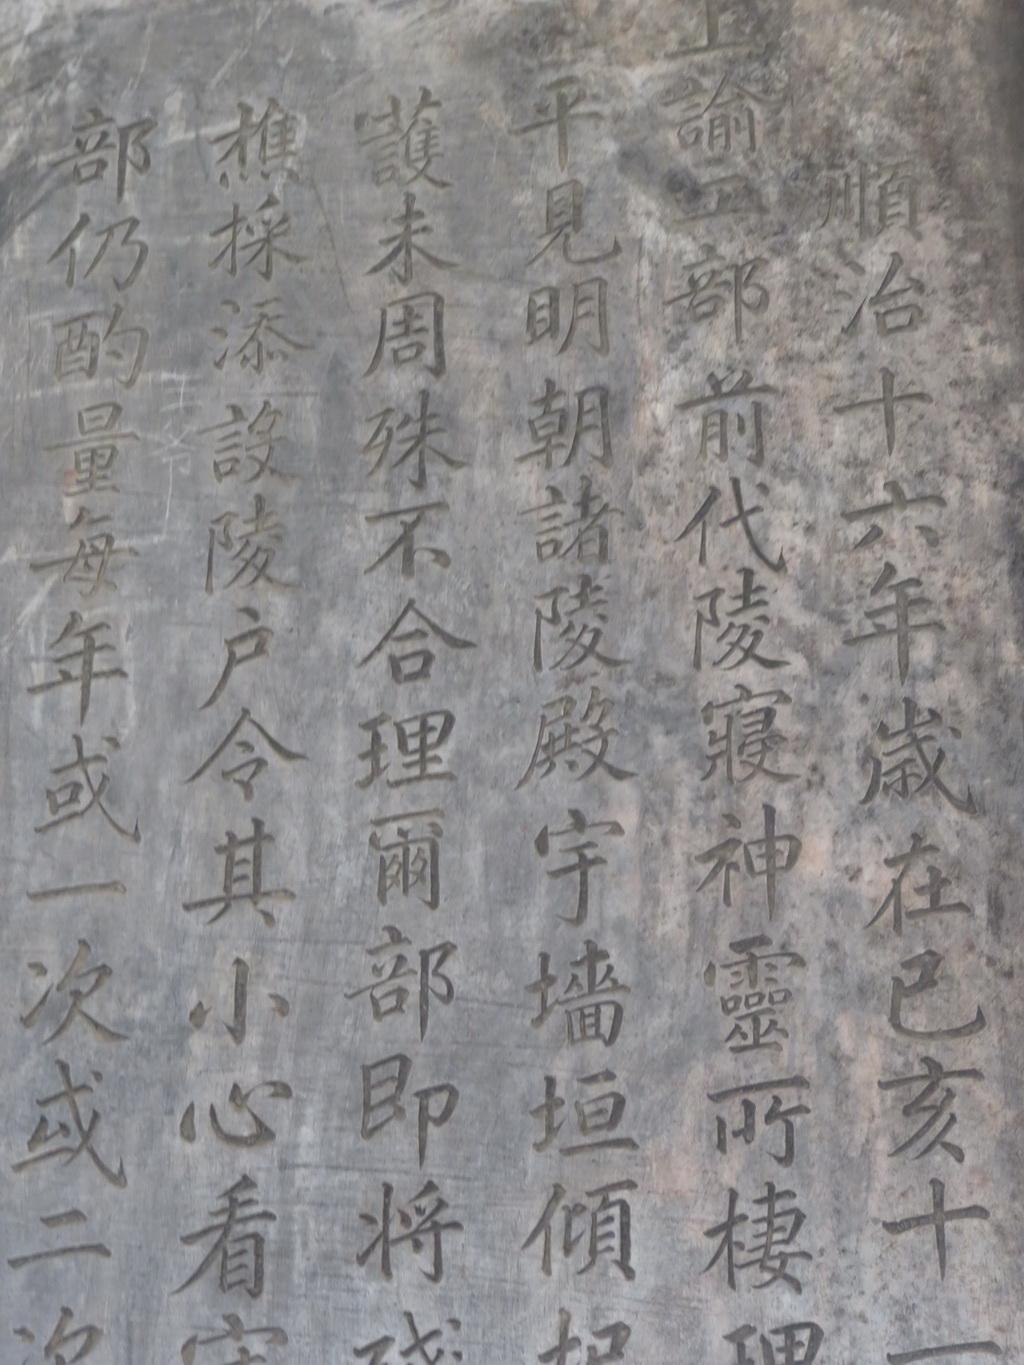 順治十六年歲在己亥十一
上諭工部前代陵寢神靈所棲理
平見明朝諸陵殿宇墻垣傾圮
護未周殊不合理爾部即將殘
樵採添設陵户令其小心看守
部仍酌量每年或一次或二次